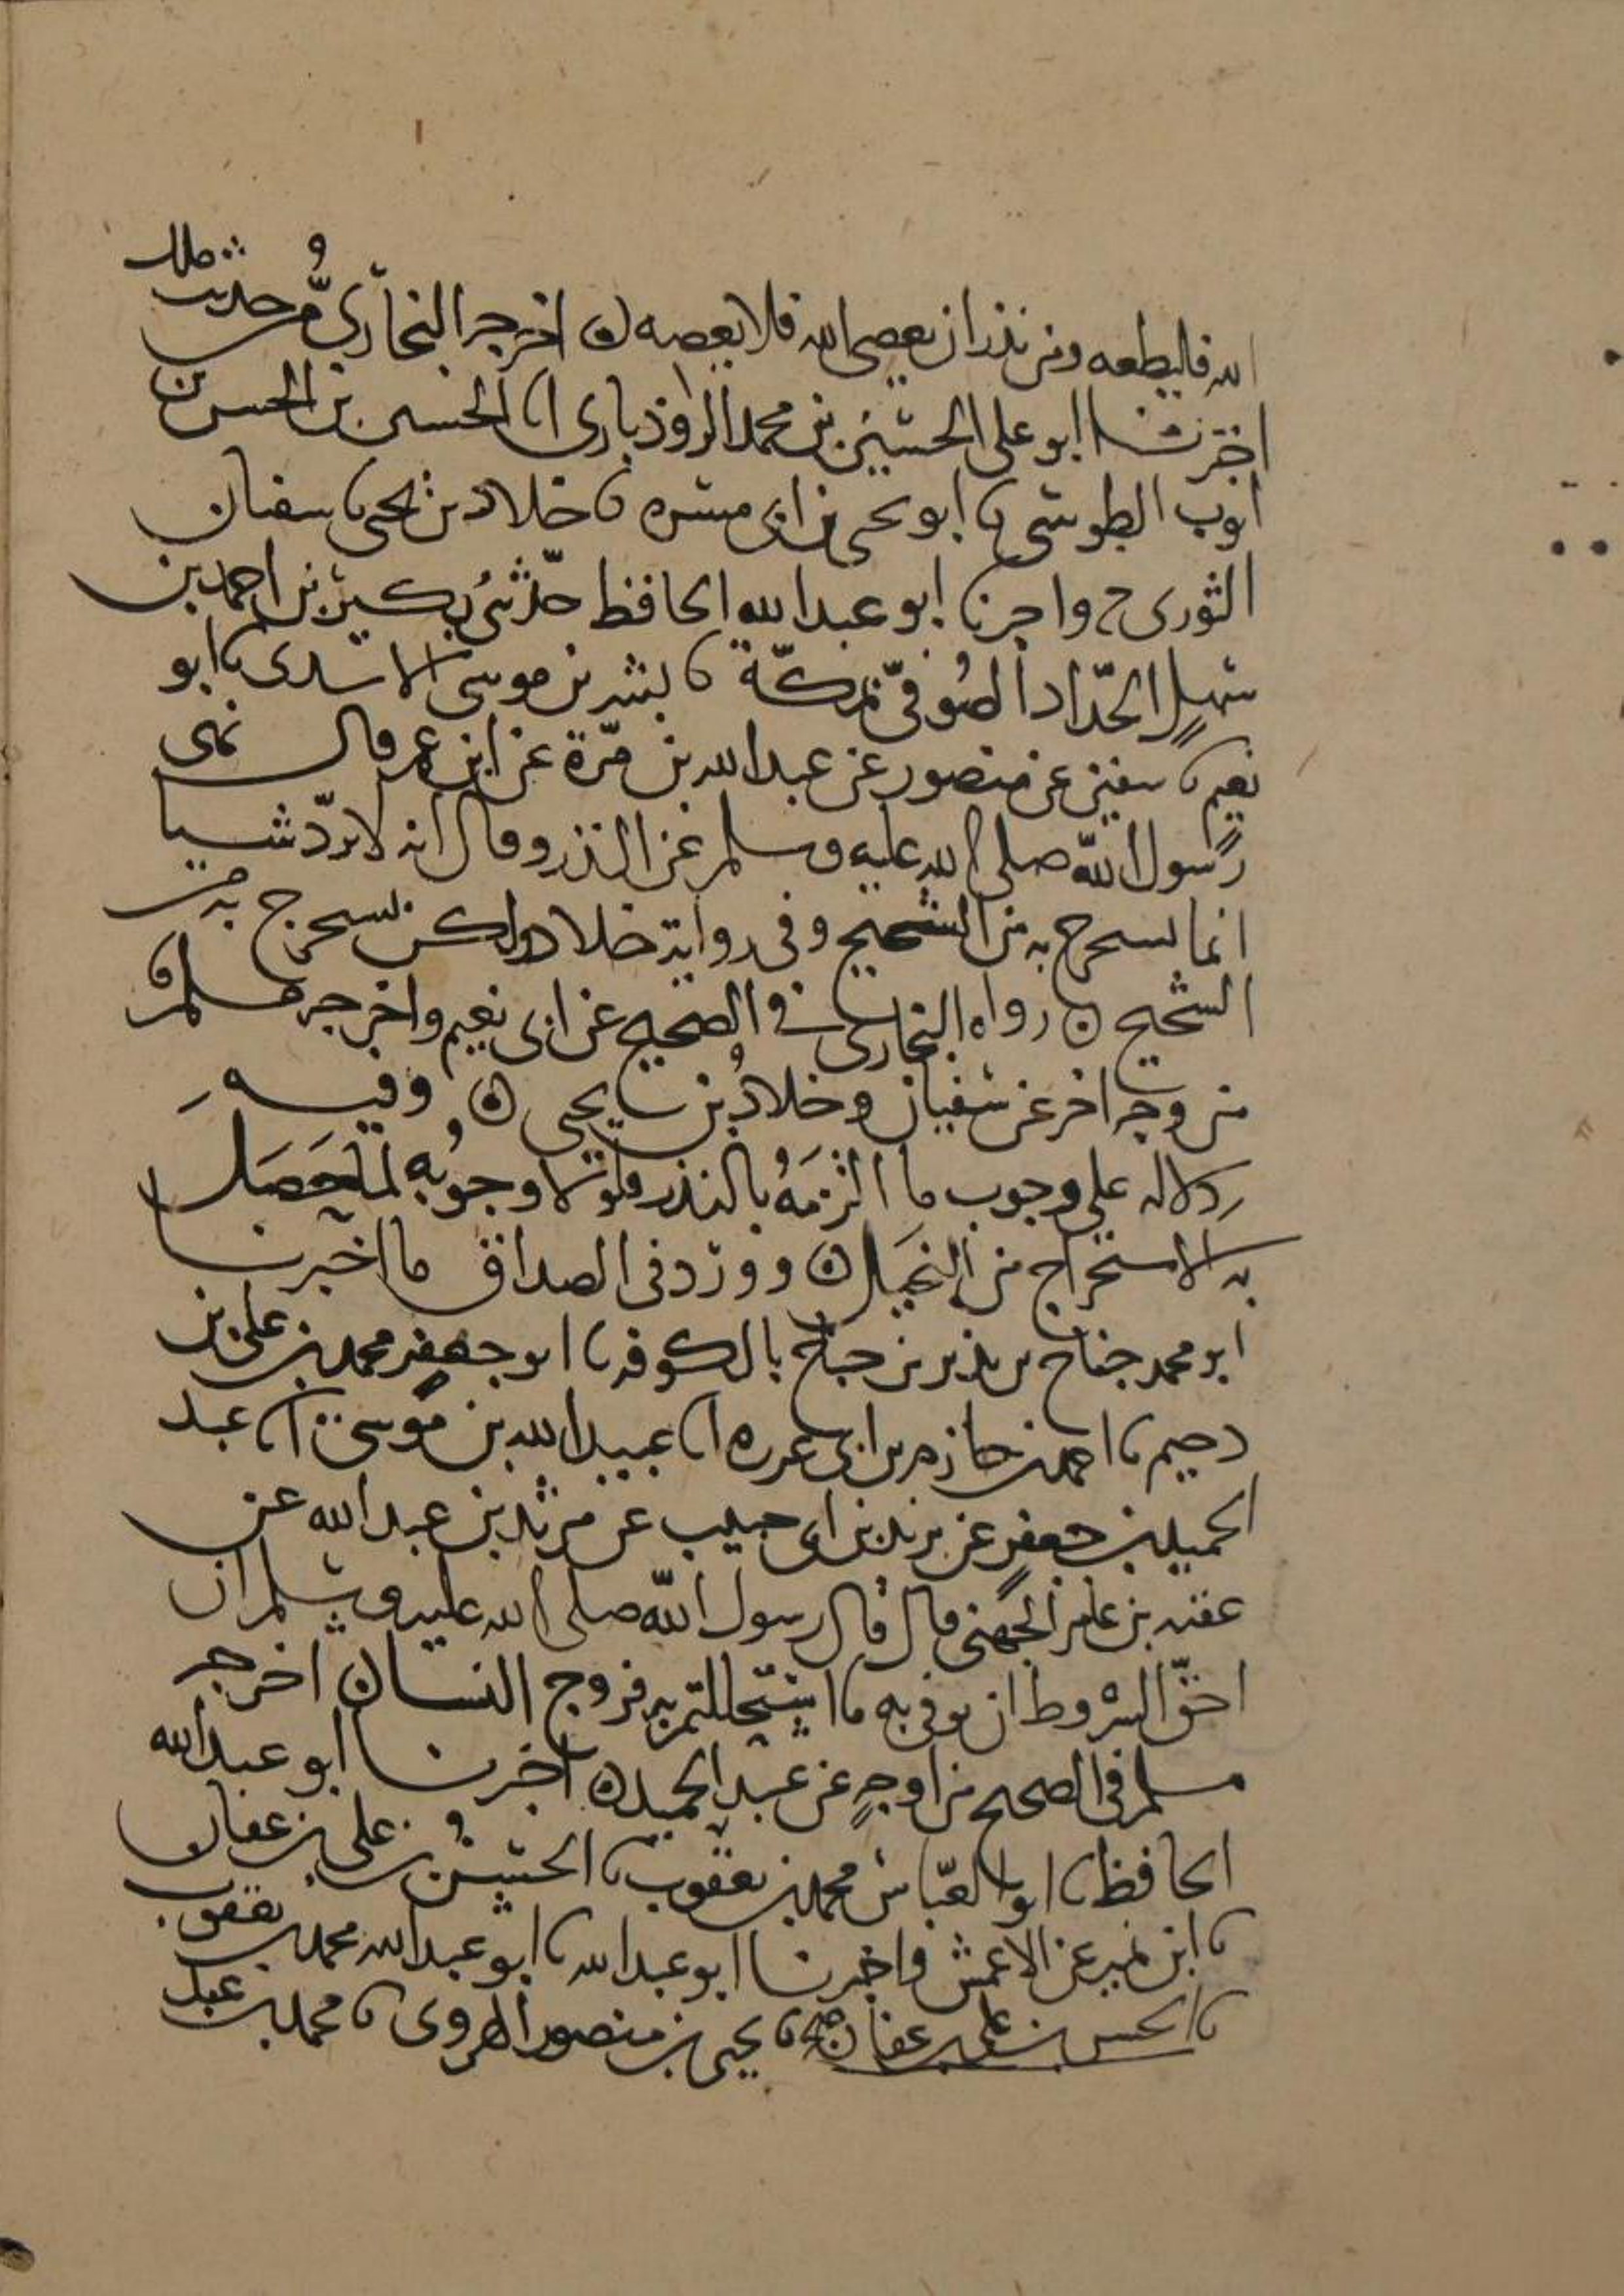 الله فليطعه ومن نذر ان يعصى الله فلا يعصه ه اخرجه البخاري من حديث مالك
اخبرنا ابو على الحسين بن محمد الروذبارى انا الحسين بن الحسن بن
ايوب الطوسى نا ابو يحيى بن ابى مسره نا خلاد بن يحيى نا سفيان
الثورى ح واخبرنا ابو عبد الله الحافظ حدثنى بكير بن احمد بن
سهل الحداد الصوفى بمكة نا بشر بن موسى الاسدى نا ابو
نعيم نا سفين عن منصور عن عبد الله بن مرة عن ابن عمر قال نهى
رسول الله صلى الله عليه وسلم عن النذر وقال انه لا يرد شيا
انما يستخرج به من الشحيح وفى رواية خلاد ولكن يستخرج به من
الشحيح ه رواه البخارى فى الصحيح عن ابى نعيم واخرجه مسلم
من وجه اخر عن سفيان وخلاد بن يحيى ه وفيه
دلاله على وجوب ما التزمه بالنذر فلولا وجوبه لما حصل
به الاستخراج من البخيل ه وورد فى الصداق ما اخبرنا
ابو محمد جناح بن نذير بن جناح بالكوفه نا ابو جعفر محمد بن على بن
دحيم نا احمد بن حازم بن ابى غرزه انا عبيد الله بن موسى انا عبد
الحميد بن جعفر عن يزيد بن ابى حبيب عن مرثد بن عبد الله عن
عقبه بن عامر الجهنى قال قال رسول الله صلى الله عليه وسلم ان
احق الشروط ان يوفى به ما استحللتم به فروج النسا ه اخرجه
مسلم فى الصحيح من اوجه عن عبد الحميد ه اخبرنا ابو عبد الله
الحافظ نا ابو العباس محمد بن يعقوب نا الحسن بن على بن عفان
نا ابن نمير عن الاعمش واخبرنا ابو عبد الله نا ابو عبد الله محمد بن يعقوب
نا الحسن بن على بن عفان نا يحيى بن منصور الهروى نا محمد بن عبد